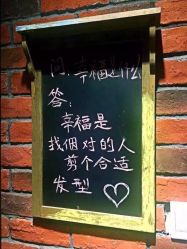 问：幸福
答：
幸福是
找個对的人
剪个合适
发型